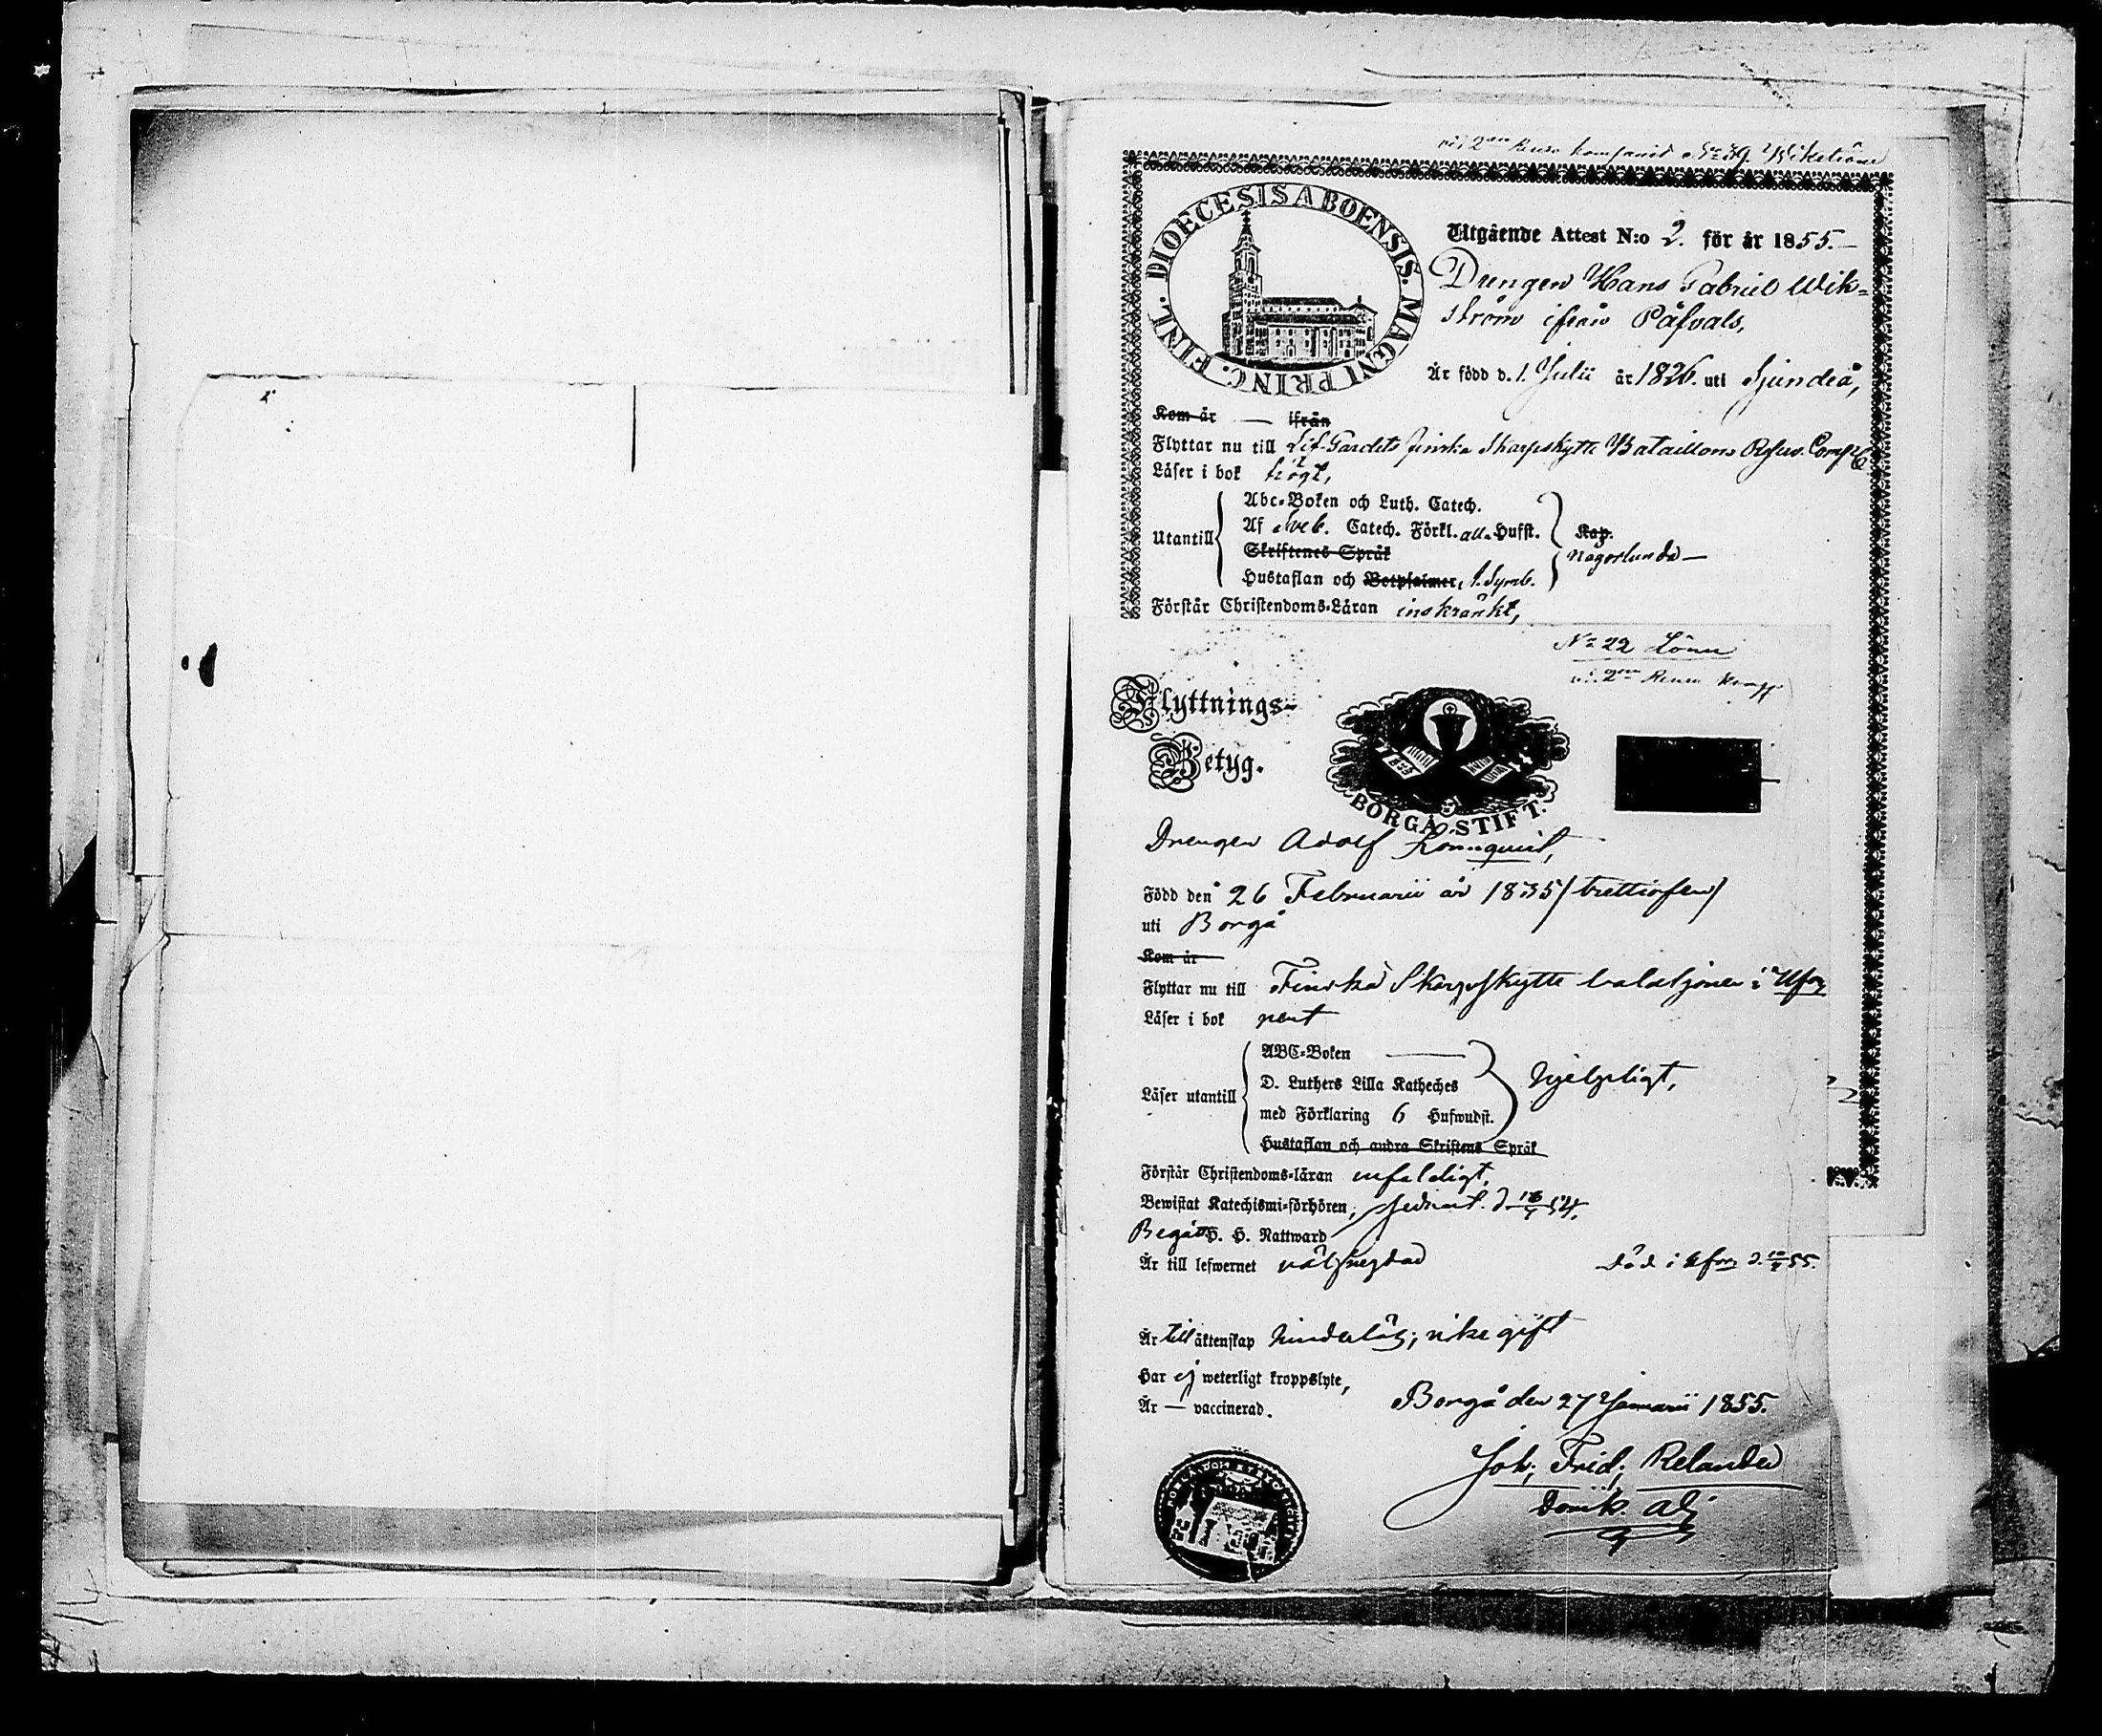 vid 2dra Reserv kompanid No 39. Wikström
DIOECESIS ABOENSIS. MAGNI PRINC. FINL.
Utgående Attest N:o 2. för år 1855.
Drengen Hans Gabriel Wik=
ström ifrån Påfvals,
Är född d. 1. Julii år 1826. uti Sjundeå,
Kom år — ifrån
Flyttar nu till Lif-Gardets finska Skarpskytte Bataillons Reserv. Comp.
Läser i bok trögt,
Abc-Boken och Luth. Catech.
Af Sveb. Catech. Förkl. all. Hufst.
Utantill
Kap.
någorlunda —
Skriftenes Språk
Hustaflan och Botpsalmer, S. Symb.
Förstår Christendoms-Läran inskränkt,
No 22 Lönn
vid 2dra Reserv Komp
Flyttnings-
Betyg.
BORGÅ STIFT.
Drengen Adolf Lönnquist,
Född den 26 Februarii år 1835 (trettiofem)
uti Borgå
Kom år
Flyttar nu till Finska Skarpskytte bataljonen i Ufm
Läser i bok rent
ABC-Boken —
D. Luthers Lilla Katheches
Läser utantill
hjelpligt,
med Förklaring 6 Hufwudst.
Hustaflan och andra Skriftens Språk
Förstår Christendoms-läran enfaldigt,
Bewistat Katechismi-förhören,
Begått H. H. Nattward
Är till lefwernet välfrejdad
Död i Ufm d. 55.
Är till äktenskap hinderlös; icke gift
Har ej weterligt kroppslyte,
Är — vaccinerad.
Borgå den 27 Januarii 1855.
Joh. Frid. Relander
Domk. adj